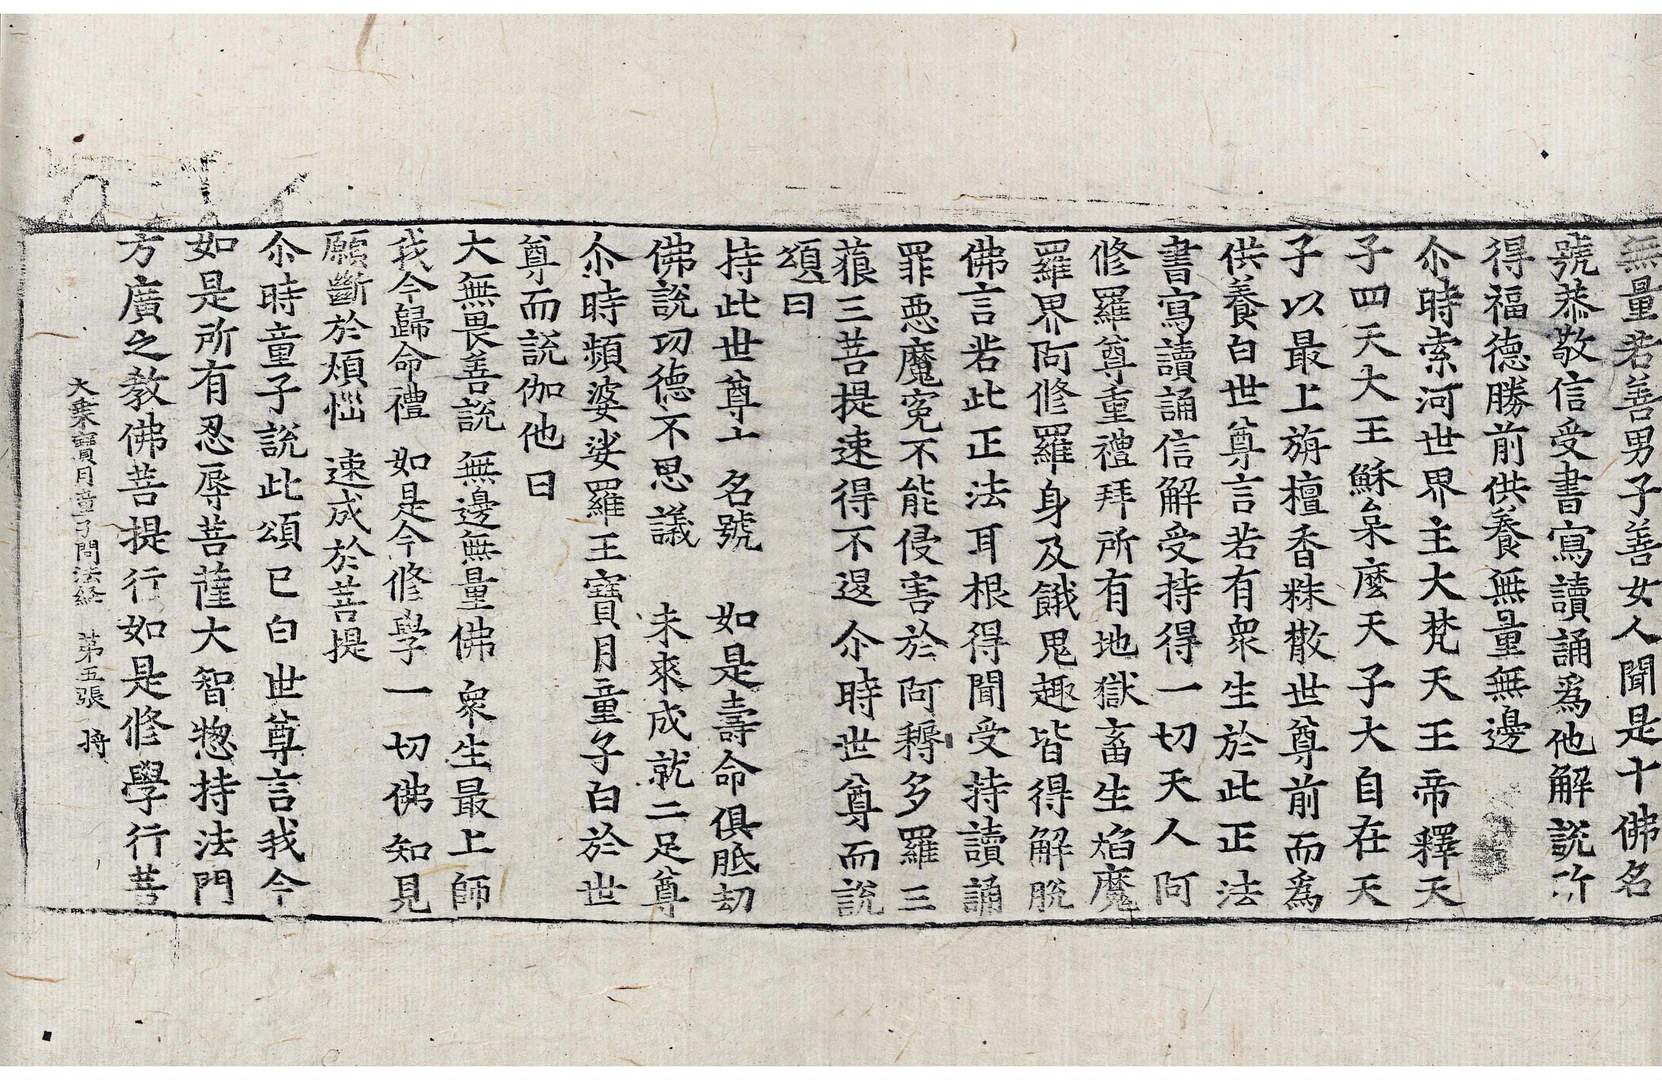 無量若善男子善女人聞是十佛名
號恭敬信受書寫讀誦爲他解說所
得福德勝前供養無量無邊
尒時索河世界主大梵天王帝釋天
子四天大王穌呆麼天子大自在天
子以最上旃檀香粖散世尊前而爲
供養白世尊言若有衆生於此正法
書寫讀誦信解受持得一切天人阿
修羅尊重禮拜所有地獄畜生焰魔
羅界阿修羅身及餓鬼趣皆得解脫
佛言若此正法耳根得聞受持讀誦
罪惡魔寃不能侵害於阿耨多羅三
藐三菩提速得不退尒時世尊而說
頌曰
持此世尊名號 如是壽命俱胝劫
佛說功德不思議 未來成就二足尊
尒時頻婆娑羅王寶月童子白於世
尊而說伽他曰
大無畏善說 無邊無量佛 衆生最上師
我今歸命禮 如是今修學 一切佛知見
願斷於煩惱 速成於菩提
尒時童子說此頌已白世尊言我今
如是所有忍辱菩薩大智惣持法門
大乗寶月童子問法經 第五張 將
方廣之教佛菩提行如是修學行菩